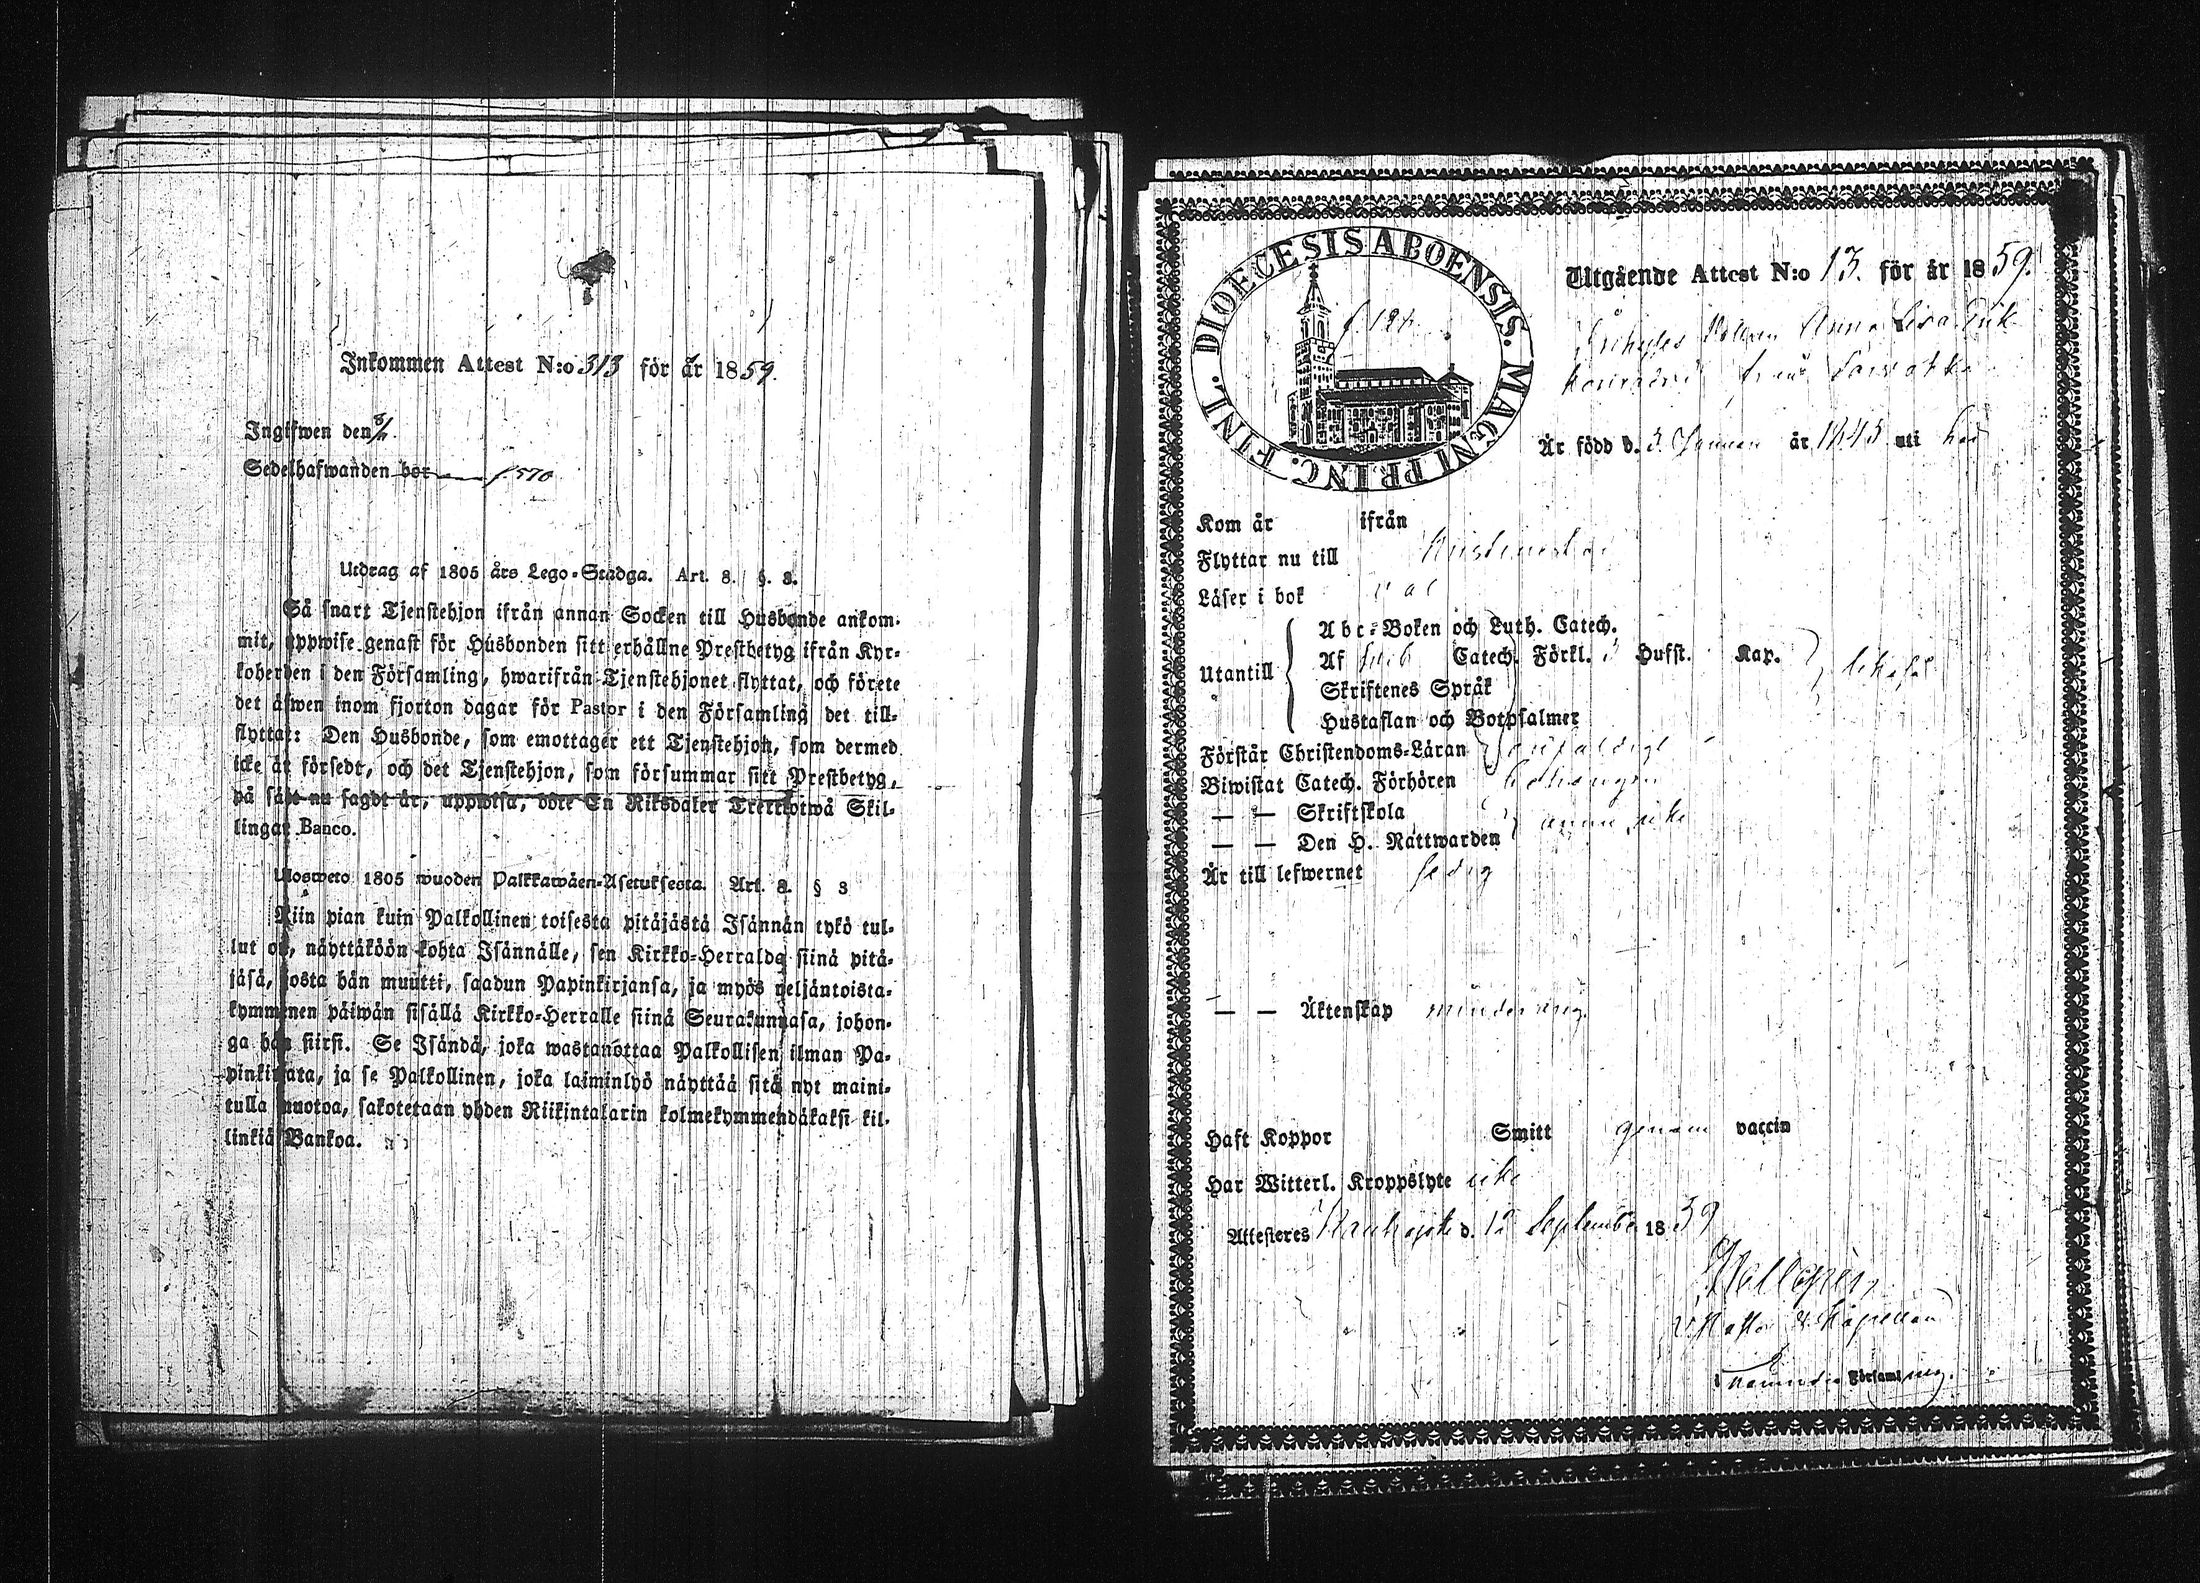 Inkommen Attest N:o 313 för år 1859.
Ingifwen den 8/11.
Sedelhafwanden bor f. 570
Utdrag af 1805 års Lego-Stadga. Art. 8. §. 3.
Så snart Tjenstehjon ifrån annan Socken till Husbonde ankom-
mit, uppwise genast för Husbonden sitt erhållne Prestbetyg ifrån Kyr-
koherden i den Församling, hwarifrån Tjenstehjonet flyttat, och förete
det äfwen inom fjorton dagar för Pastor i den Församling det till-
flyttat: Den Husbonde, som emottager ett Tjenstehjon, som dermed
icke är försedt, och det Tjenstehjon, som försummar sitt Prestbetyg,
på sätt nu sagdt är, uppwisa, böte En Riksdaler Trettiotwå Skil-
lingar Banco.
Ulosweto 1805 wuoden Palkkawäen-Asetuksesta. Art. 8. § 3
Niin pian kuin Palkollinen toisesta pitäjästä Isännän tykö tul-
lut on, näyttäköön kohta Isännälle, sen Kirkko-Herralda siinä pitä-
jäsä, josta hän muutti, saadun Papinkirjansa, ja myös neljäntoista-
kymmenen päiwän sisällä Kirkko-Herralle siinä Seurakunnasa, johon-
ga hän siirsi. Se Isändä, joka wastanottaa Palkollisen ilman Pa-
pinkirjata, ja se Palkollinen, joka laiminlyö näyttää sitä nyt maini-
tulla muotoa, sakotetaan yhden Riikintalarin kolmekymmendäkaksi kil-
linkiä Bankoa.
DIOECESIS ABOENSIS. MAGNI PRINC. FINL.
Utgående Attest N:o 13. för år 1859.
Anna Lisa
från
Är född d. 3 Januari år 1843 uti här
Kom år ifrån
Flyttar nu till Kristinestad
Läser i bok
Utantill
Abc-Boken och Luth. Catech.
Af Sveb Catech. Förkl. 3 Hufst. Kap.
Skriftenes Språk
Hustaflan och Botpsalmer
Förstår Christendoms-Läran
Biwistat Catech. Förhören
— — Skriftskola
— — Den H. Nattwarden
Är till lefwernet ledig
— — Äktenskap minderårig.
Haft Koppor Smitt genom vaccin
Har Witterl. Kroppslyte icke
Attesteres d. 12 September 1859
Kapellan
i Församling.